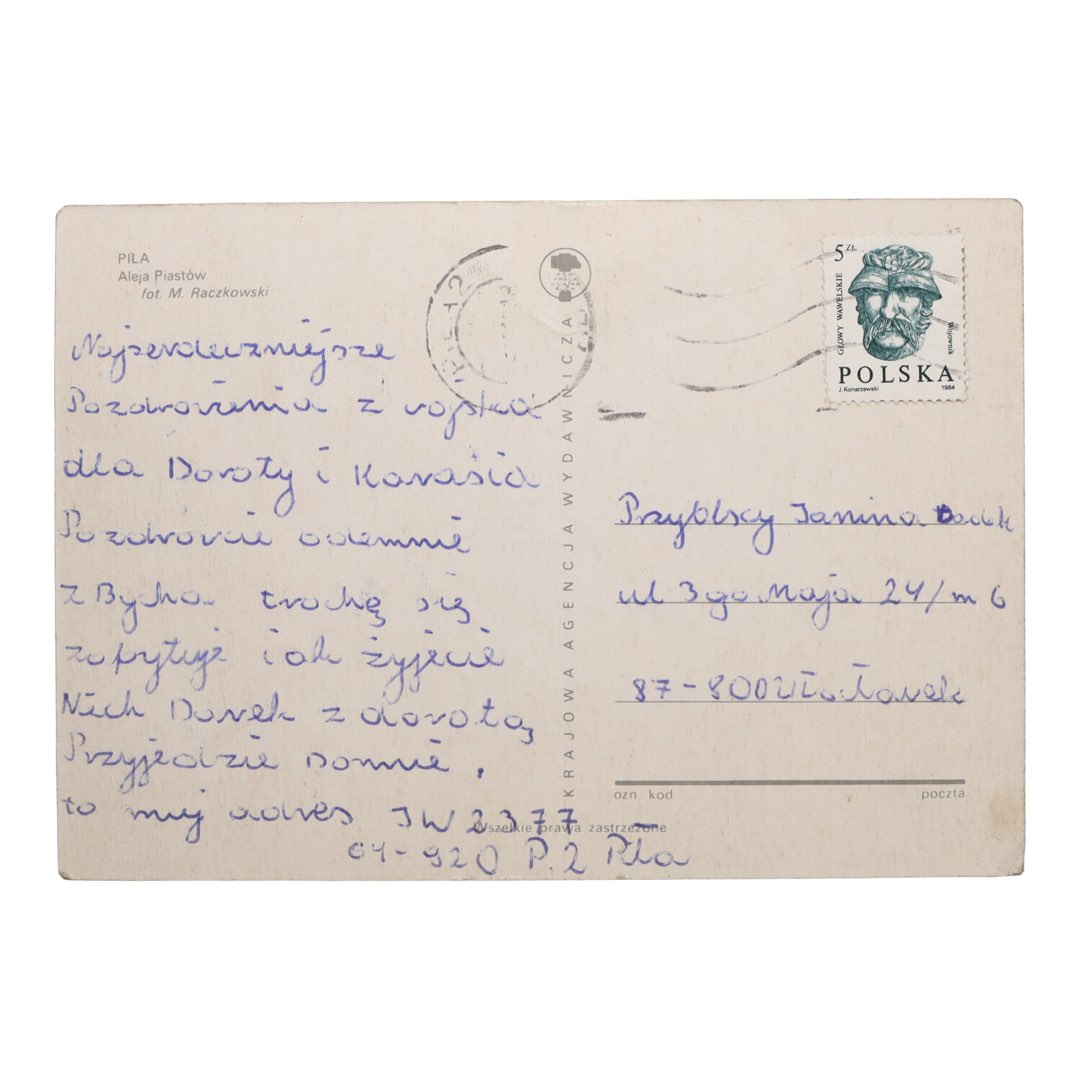 PIŁA
Aleja Piastów
fot. M. Raczkowski
Najserdeczniejsze
Pozdrowienia z wojska
dla Doroty i Karasia
Pozdrowcie odemnie
zBycha trochę się
zapytuje i ak żyjecie
Nich Darek z dorotą
Przyjedzie Domnie,
to mój adres JW 2377
64-920 P.2 Piła
KRAJOWA AGENCJA WYDAWNICZA
Wszelkie prawa zastrzeżone
PIŁA 2
5 ZŁ
GŁOWY WAWELSKIE
Wojownik
POLSKA
J. Konarzewski 1984
Przyblscy Janina
ul 3go Maja 24/m 6
87-800 Włocławek
ozn kod poczta